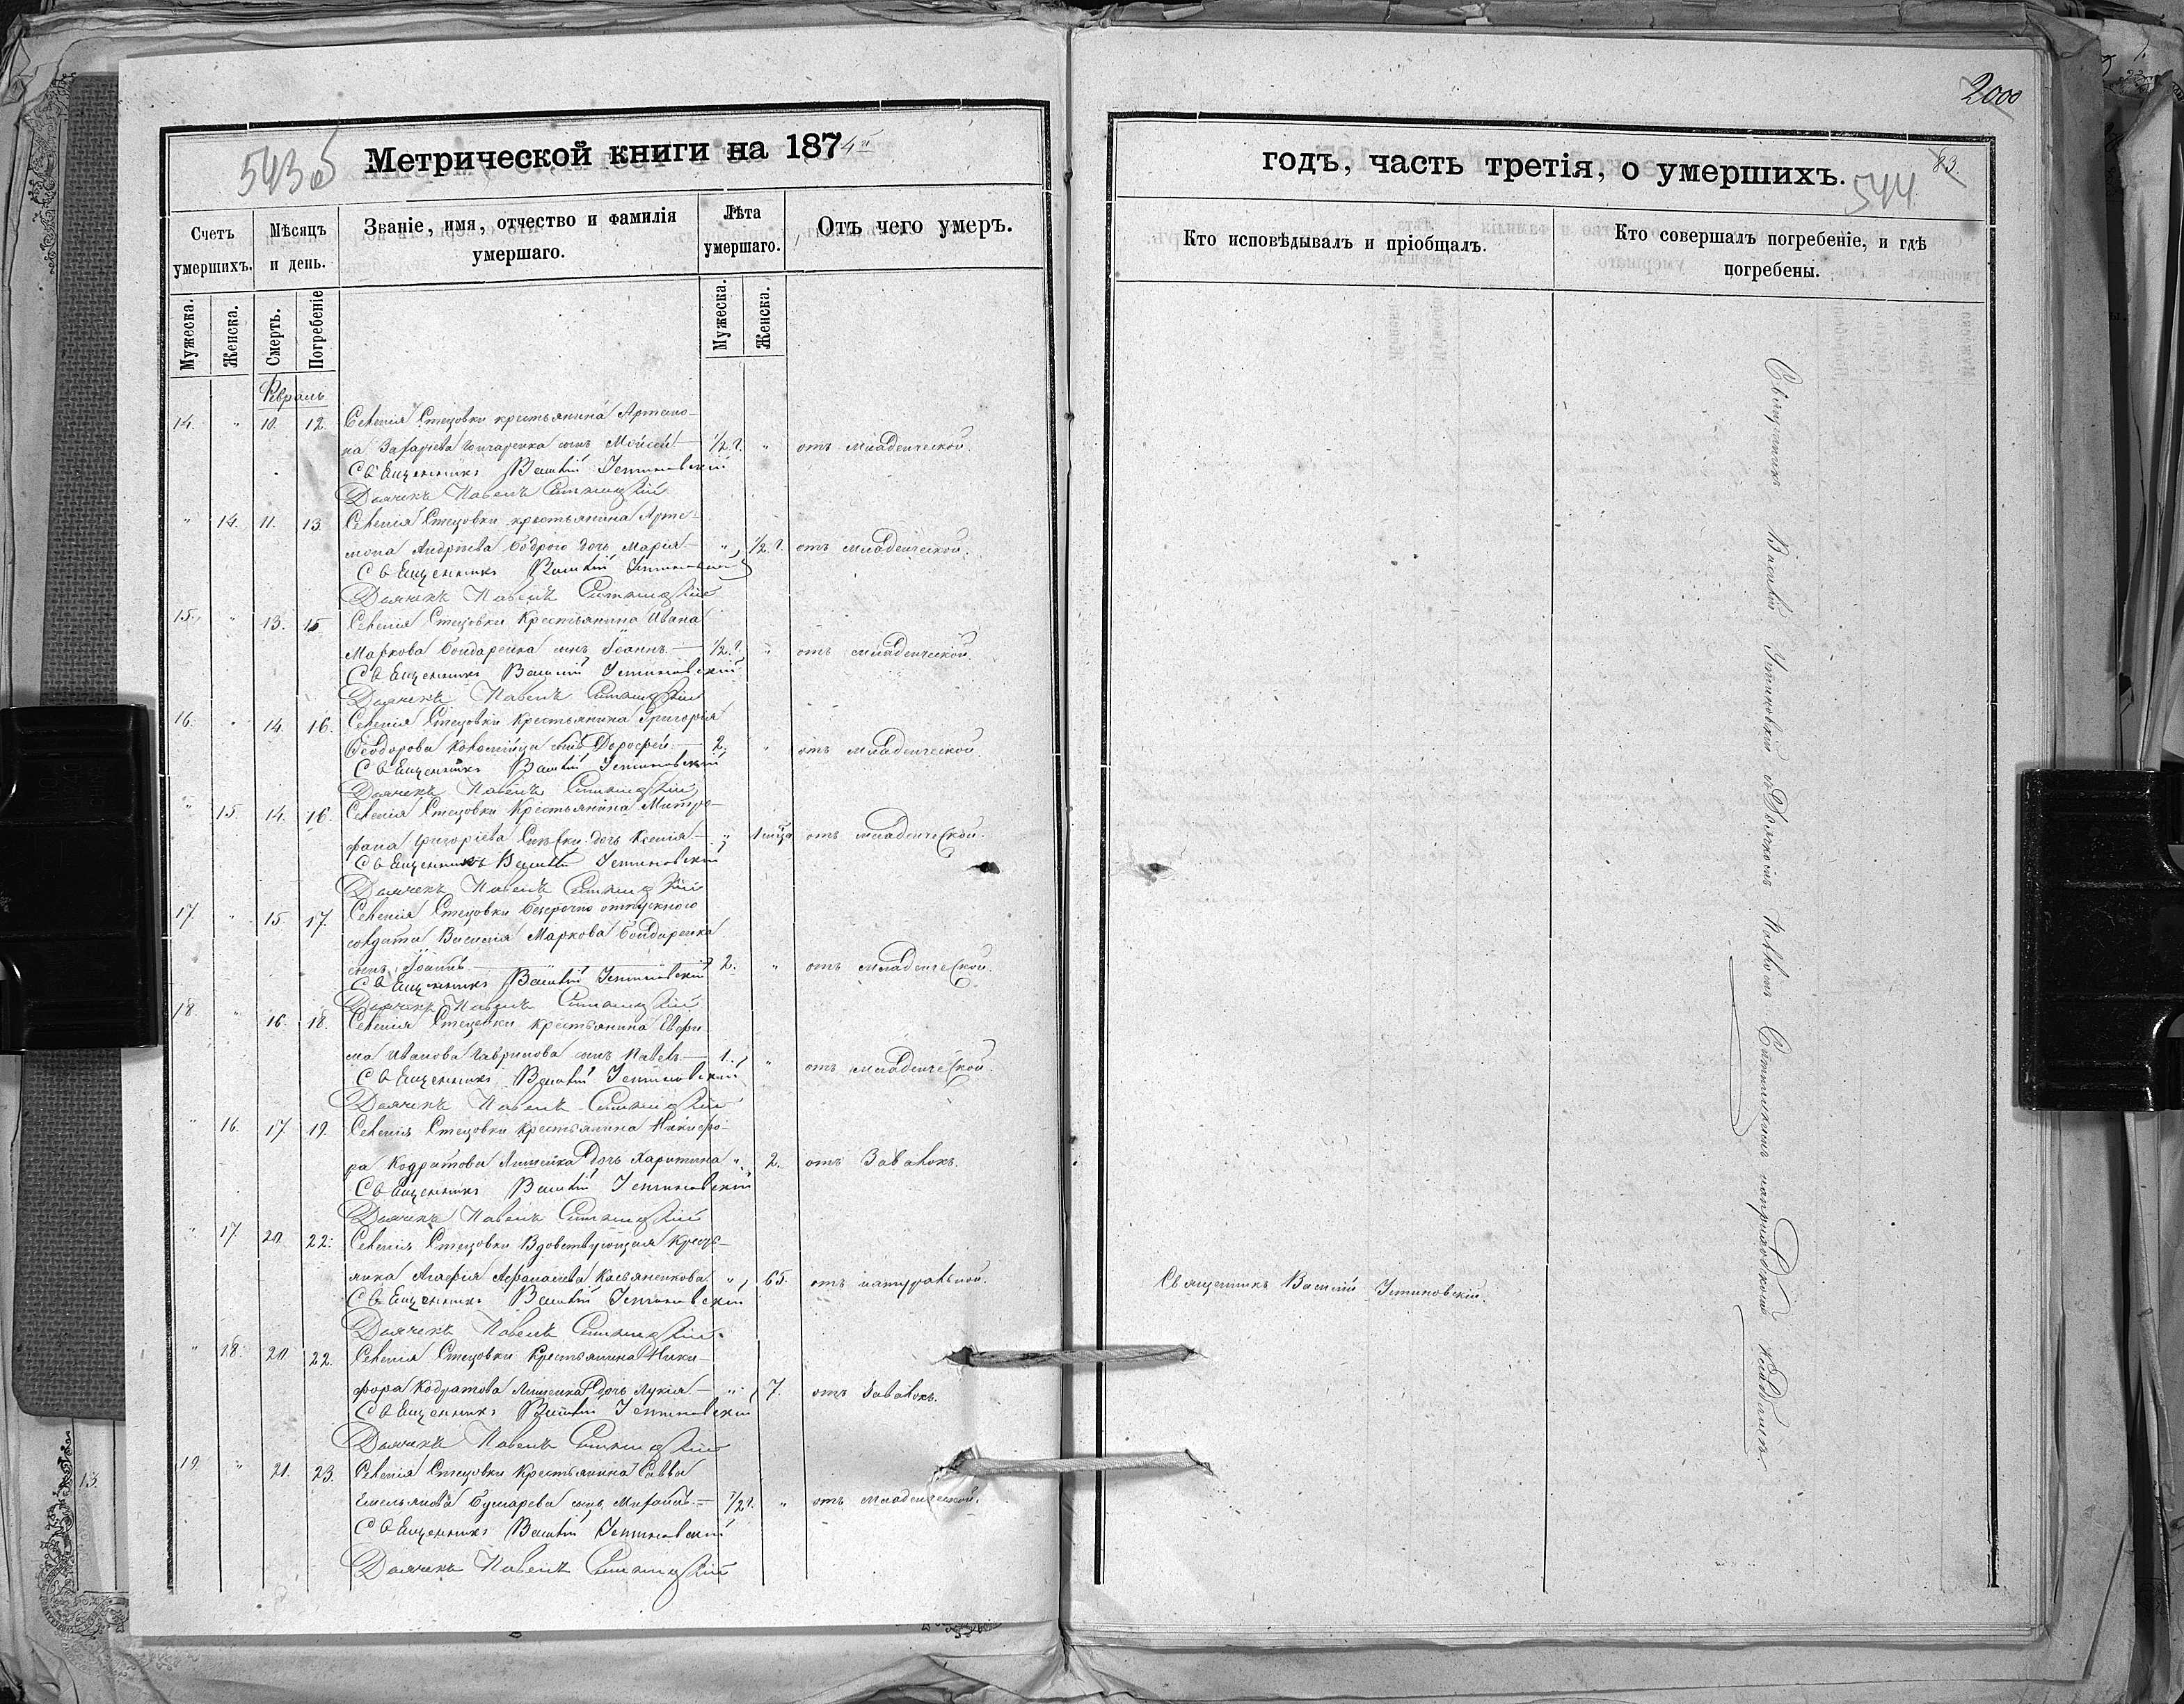 543 об
Метрической книги на 1874й
Счетъ умершихъ.
Мѣсяцъ и день.
Званіе, имя, отчество и фамилія умершаго.
Лѣта умершаго.
Отъ чего умеръ.
Мужеска.
Женска.
Смерть.
Погребеніе
Мужеска.
Женска.
Февраль
14. " 10. 12. Селенія Стецовки крестьянина Артемо-
на Захаріева Гончаренка сынъ Моисей — 1/2 г. " отъ младенческой
Священникъ Василій Устиновскій
Дьячекъ Павелъ
" 14. 11. 13. Селенія Стецовки крестьянина Арте-
мона Андріева Бодрого дочь Марія — " 1/2 г. отъ младенческой.
Священникъ Василій Устиновскій
Дьячекъ Павелъ
15. " 13. 15 Селенія Стецовки Крестьянина Ивана
Маркова Бондаренка сынъ Іоаннъ. — 1/2 г. " отъ младенческой.
Священникъ Василій Устиновскій
Дьячекъ Павелъ
16. " 14. 16. Селенія Стецовки Крестьянина Григорія
Ѳеодорова Коломійца сынъ Дороѳей. — 2. " отъ младенческой
Священникъ Василій Устиновскій
Дьячекъ Павелъ
" 15. 14. 16. Селенія Стецовки Крестьянина Митро-
фана Григоріева дочь Ксенія — " отъ младенческой.
Священникъ Василій Устиновскій
Дьячекъ Павелъ
17. " 15. 17. Селенія Стецовки безсрочно отпускного
солдата Василія Маркова Бондаренка
сынъ Іоаннъ — 2. " отъ младенческой.
Священникъ Василій Устиновскій
Дьячекъ Павелъ
18. " 16. 18. Селенія Стецовки крестьянина Евфи-
ма Иванова Гаврилова сынъ Павелъ — 1. " отъ младенческой.
Священникъ Василій Устиновскій
Дьячекъ Павелъ
" 16. 17. 19. Селенія Стецовки Крестьянина Никифо-
ра Кодратова дочь Харитина " 2. отъ Завалокъ.
Священникъ Василій Устиновскій
Дьячекъ Павелъ
" 17. 20. 22. Селенія Стецовки Вдовствующая Крестья-
янка Агафія Афанасіева Касьяненкова " 65. отъ натуральной.
Священникъ Василій Устиновскій
Дьячекъ Павелъ
" 18. 20. 22. Селенія Стецовки Крестьянина Ники-
фора Кодратова дочь Лукія — " 7. отъ Завалокъ.
Священникъ Василій Устиновскій
Дьячекъ Павелъ
19. " 21. 23. Селенія Стецовки Крестьянина Саввы
Емельянова сынъ — 1/2 г. " отъ младенческой.
Священникъ Василій Устиновскій
Дьячекъ Павелъ
2000
83.
годъ, часть третія, о умершихъ.
544
Кто исповѣдывалъ и пріобщалъ.
Кто совершалъ погребеніе, и гдѣ погребены.
Священникъ Василій Устиновскій.
Священникъ Василій Устиновскій съ Дьячкомъ Павломъ на приходскомъ кладбищѣ